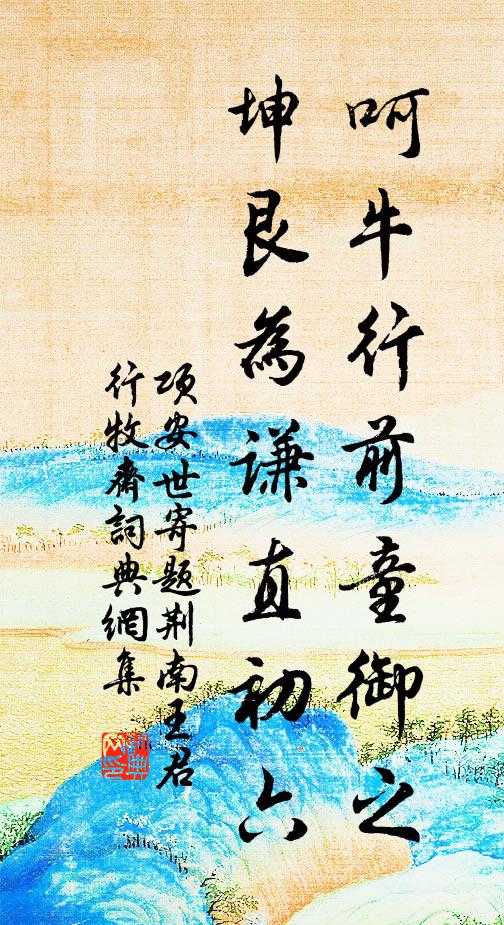 呵牛行前童御之
坤艮為謙直初六
項安世寄題荆南王君
行牧齋詞典網集